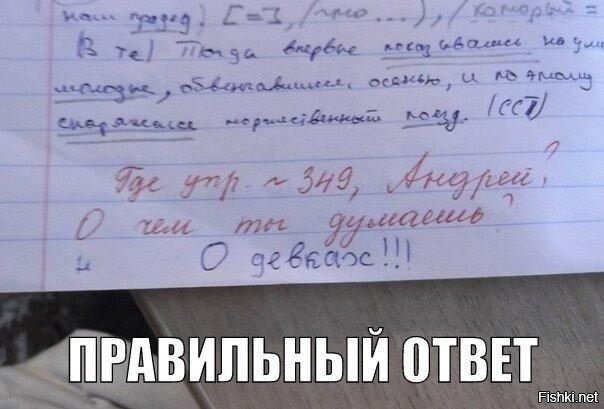 наш прадед, [=], (что...), (который =
(В те) Тогда впервые показывались на ули
молодые, обвенчавшиеся осенью, и поэтому
снаряжался торжественный поезд. (ССП)
Где упр. ~ 349, Андрей?
О чем ты думаешь?
О девках!!!
ПРАВИЛЬНЫЙ ОТВЕТ
Fishki.net